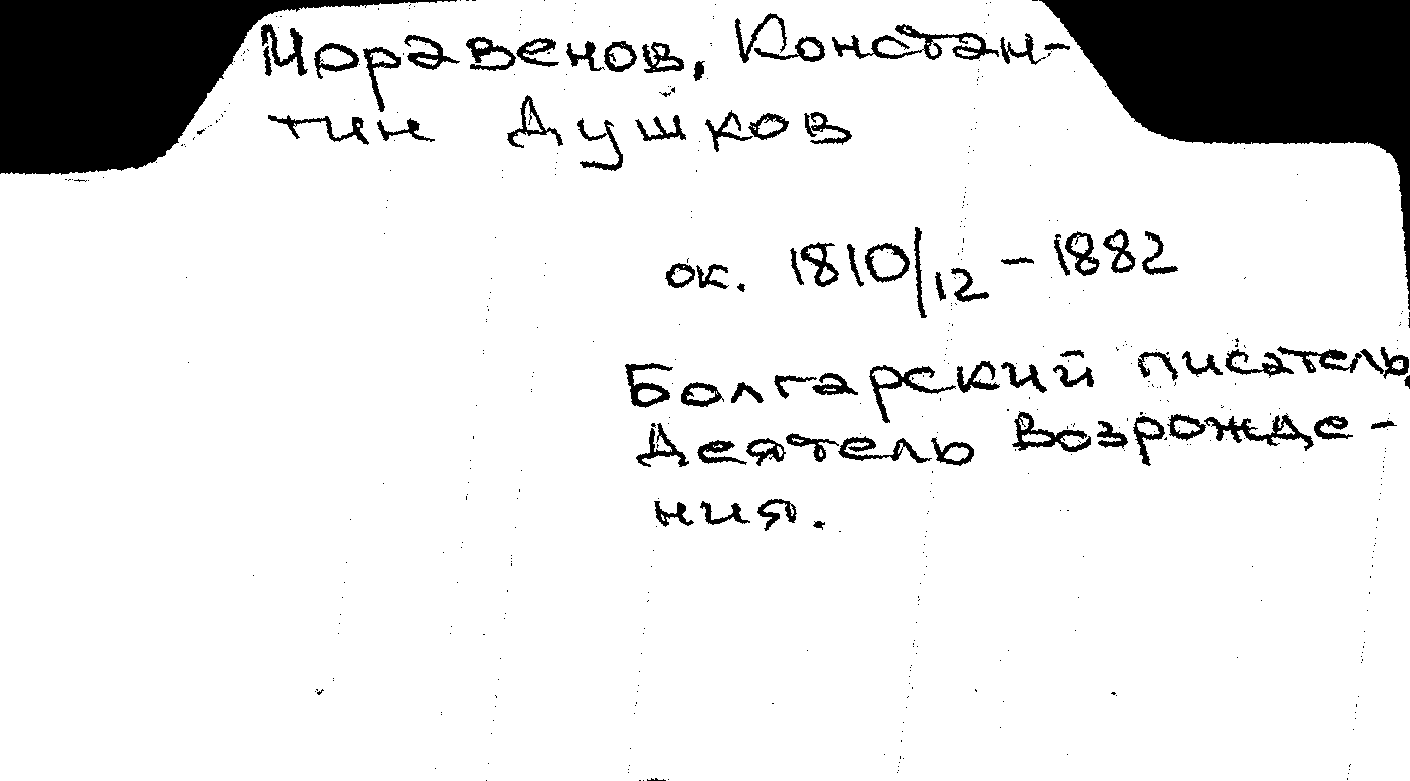 Моравенов, Констан-
тин Душков
ок. 1810/12 - 1882
Болгарский писатель,
деятель Возрожде-
ния.